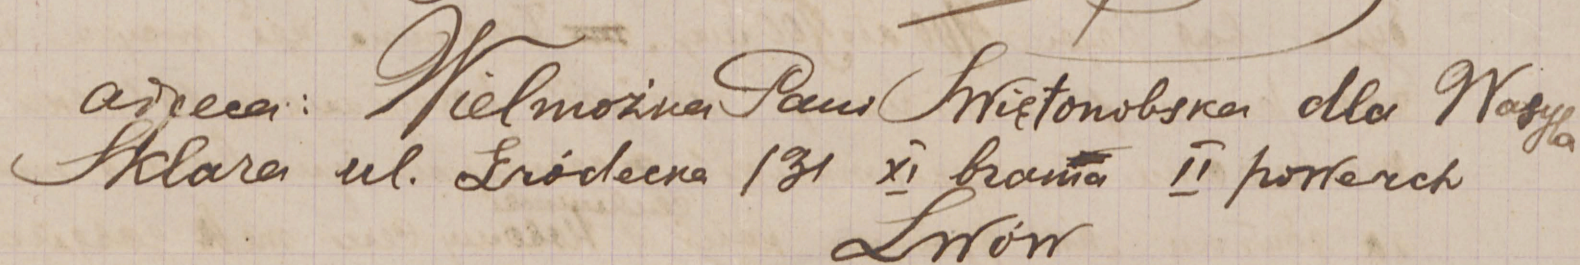 адреса: Wielmożna Pani Swiętonobska dla Wasyla
Sklara ul. Gródecka 131 XI brama II powerch
Lwów